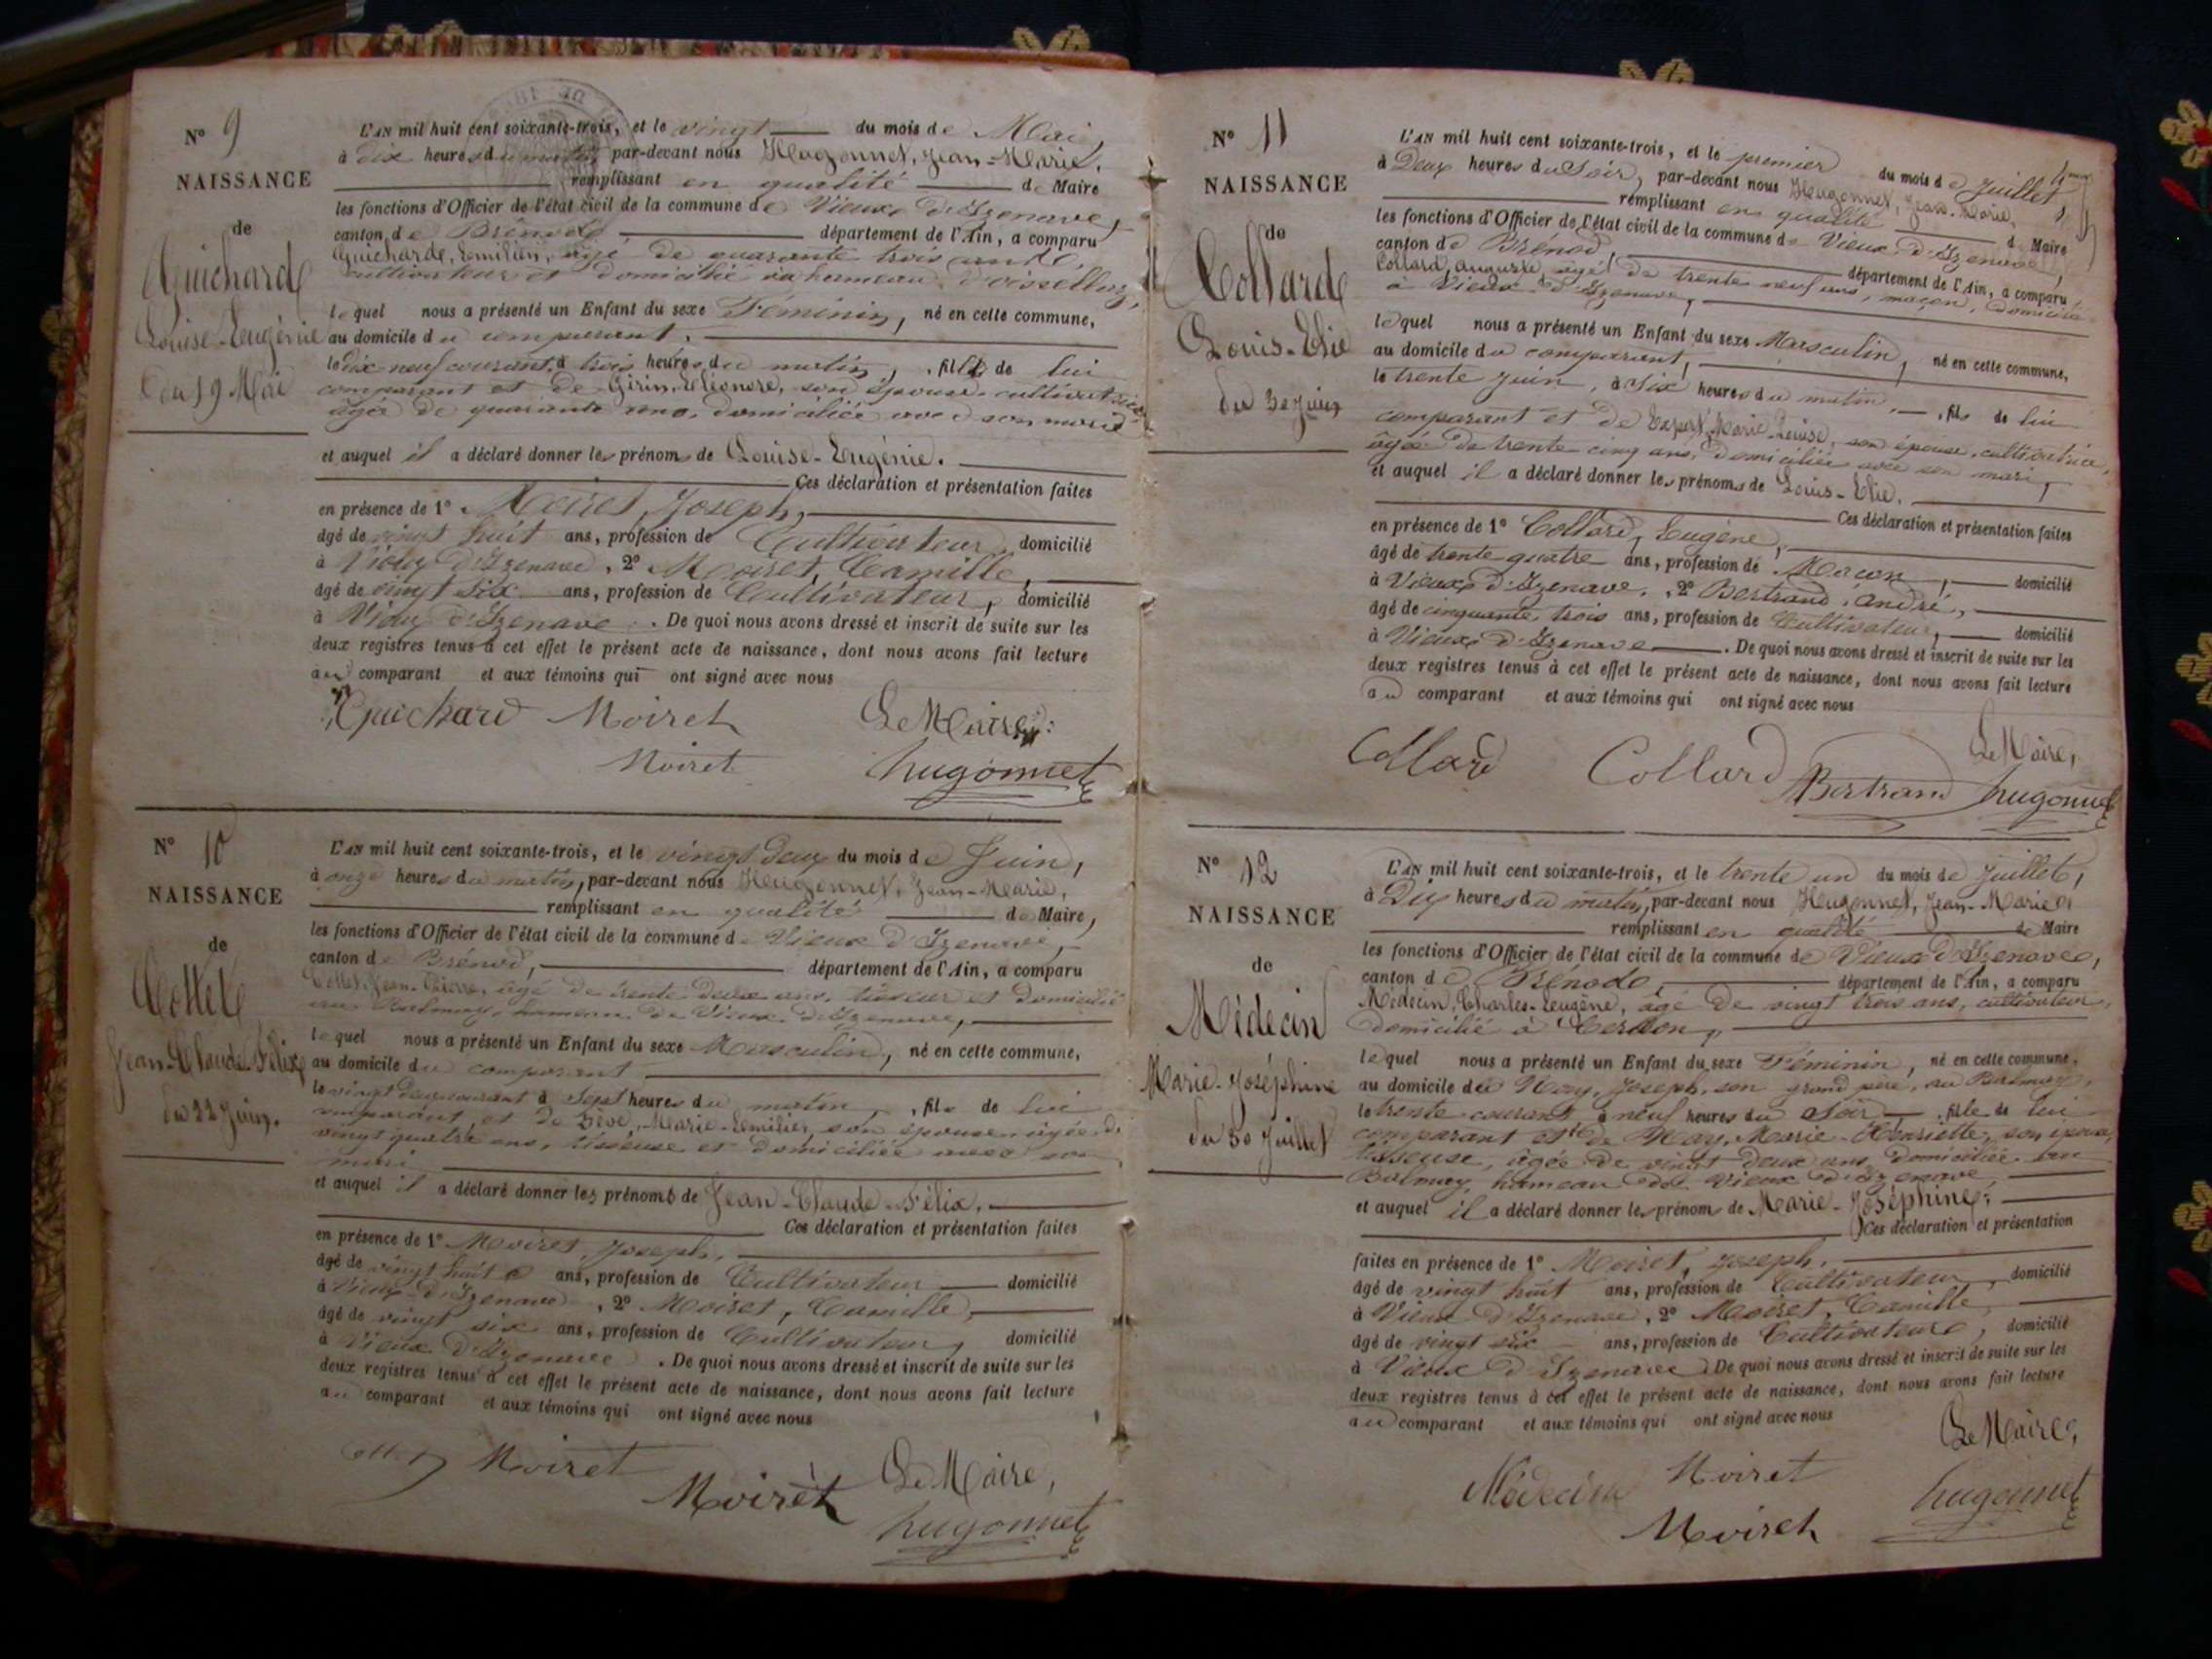 N° 9
NAISSANCE
de
Guichard
Louise-Eugénie
du 19 Mai
L'AN mil huit cent soixante-trois, et le vingt du mois de Mai,
à dix heures du matin par-devant nous Hugonnet, Jean-Marie,
remplissant en qualité de Maire
les fonctions d'Officier de l'état civil de la commune de Vieux d'Izenave,
canton de Brénod département de l'Ain, a comparu
Guichard, Emilien, âgé de quarante trois ans,
cultivateur et domicilié au hameau d'oisselaz,
lequel nous a présenté un Enfant du sexe Féminin, né en cette commune,
au domicile du comparant,
le dix neuf courant, à trois heures du matin, fille de lui
comparant et de Girin, Eléonore, son épouse, cultivatrice
âgée de quarante ans, domiciliée avec son mari
et auquel il a déclaré donner les prénoms de Louise-Eugénie.
Ces déclaration et présentation faites
en présence de 1° Moiret, Joseph,
âgé de vingt huit ans, profession de Cultivateur domicilié
à Vieux d'Izenave, 2° Moiret, Camille,
âgé de vingt six ans, profession de Cultivateur, domicilié
à Vieux d'Izenave. De quoi nous avons dressé et inscrit de suite sur les
deux registres tenus à cet effet le présent acte de naissance, dont nous avons fait lecture
au comparant et aux témoins qui ont signé avec nous
Guichard Moiret Le Maire,
Moiret hugonnet
N° 10
NAISSANCE
de
Collet
Jean-Claude-Félix
du 22 Juin.
L'AN mil huit cent soixante-trois, et le vingt deux du mois de Juin,
à onze heures du matin, par-devant nous Hugonnet, Jean-Marie,
remplissant en qualité de Maire,
les fonctions d'Officier de l'état civil de la commune de Vieux d'Izenave,
canton de Brénod, département de l'Ain, a comparu
Collet, Jean-Pierre, âgé de trente deux ans, tisseur et domicilié
au Balmay, hameau de Vieux d'Izenave,
lequel nous a présenté un Enfant du sexe Masculin, né en cette commune,
au domicile du comparant
le vingt deux courant à Sept heures du matin, fils de lui
comparant, et de Sève, Marie-Emilie, son épouse, âgée de
vingt quatre ans, tisseuse et domiciliée avec son
mari
et auquel il a déclaré donner les prénoms de Jean-Claude-Félix.
Ces déclaration et présentation faites
en présence de 1° Moiret, Joseph,
âgé de vingt huit ans, profession de Cultivateur domicilié
à Vieux d'Izenave, 2° Moiret, Camille,
âgé de vingt six ans, profession de Cultivateur, domicilié
à Vieux d'Izenave. De quoi nous avons dressé et inscrit de suite sur les
deux registres tenus à cet effet le présent acte de naissance, dont nous avons fait lecture
au comparant et aux témoins qui ont signé avec nous
Moiret Le Maire,
Moiret hugonnet
N° 11
NAISSANCE
de
Collard
Louis-Elie
du 30 Juin
L'AN mil huit cent soixante-trois, et le premier du mois de Juillet,
à Deux heures du Soir, par-devant nous Hugonnet, Jean-Marie,
remplissant en qualité de Maire
les fonctions d'Officier de l'état civil de la commune de Vieux d'Izenave,
canton de Brénod, département de l'Ain, a comparu
Collard, Auguste, âgé de trente neuf ans, maçon, domicilié
à Vieux d'Izenave,
lequel nous a présenté un Enfant du sexe Masculin, né en cette commune,
au domicile du comparant,
le trente Juin, à Six heures du matin, fils de lui
comparant et de Marie-Louise, son épouse, cultivatrice,
âgée de trente cinq ans, domiciliée avec son mari,
et auquel il a déclaré donner les prénoms de Louis-Elie.
Ces déclaration et présentation faites
en présence de 1° Collard, Eugène,
âgé de trente quatre ans, profession de Maçon, domicilié
à Vieux d'Izenave, 2° Bertrand, André,
âgé de cinquante trois ans, profession de Cultivateur, domicilié
à Vieux d'Izenave. De quoi nous avons dressé et inscrit de suite sur les
deux registres tenus à cet effet le présent acte de naissance, dont nous avons fait lecture
au comparant et aux témoins qui ont signé avec nous
Le Maire,
Collard Collard Bertrand hugonnet
N° 12
NAISSANCE
de
Médecin
Marie-Joséphine
du 30 Juillet
L'AN mil huit cent soixante-trois, et le trente un du mois de Juillet,
à Dix heures du matin, par-devant nous Hugonnet, Jean-Marie,
remplissant en qualité de Maire
les fonctions d'Officier de l'état civil de la commune de Vieux d'Izenave,
canton de Brénod, département de l'Ain, a comparu
Médecin, Charles-Eugène, âgé de vingt trois ans, cultivateur,
domicilié à Cerdon,
lequel nous a présenté un Enfant du sexe Féminin, né en cette commune,
au domicile de Joseph, son grand père, au Balmay,
le trente courant à neuf heures du Soir, fille de lui
comparant et de Marie-Henriette, son épouse,
tisseuse, âgée de vingt deux ans, domiciliée au
Balmay, hameau de Vieux d'Izenave,
et auquel il a déclaré donner les prénoms de Marie-Joséphine.
Ces déclaration et présentation
faites en présence de 1° Moiret, Joseph,
âgé de vingt huit ans, profession de Cultivateur, domicilié
à Vieux d'Izenave, 2° Moiret, Camille,
âgé de vingt six ans, profession de Cultivateur, domicilié
à Vieux d'Izenave. De quoi nous avons dressé et inscrit de suite sur les
deux registres tenus à cet effet le présent acte de naissance, dont nous avons fait lecture
au comparant et aux témoins qui ont signé avec nous
Le Maire,
Médecin Moiret hugonnet
Moiret